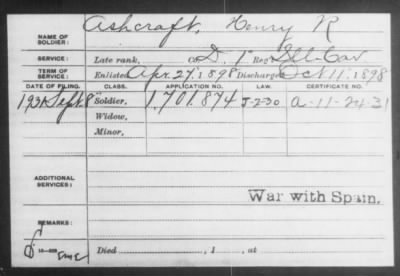 NAME OF SOLDIER: Ashcraft, Henry R
SERVICE: Late rank, Co. D, 1" Reg't Ill. Cav
TERM OF SERVICE: Enlisted Apr. 27, 1898 Discharged Oct 11, 1898
DATE OF FILING. CLASS. APPLICATION NO. LAW. CERTIFICATE NO.
1931 Sept. 8 Soldier, 1,701,874 J-2-30 a-11-24-31
Widow,
Minor,
ADDITIONAL SERVICES:
War with Spain.
REMARKS:
Died , 1 , at